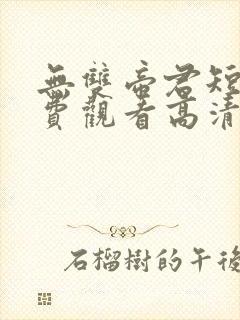 無雙帝君短
費觀看高清
石榴樹的午後